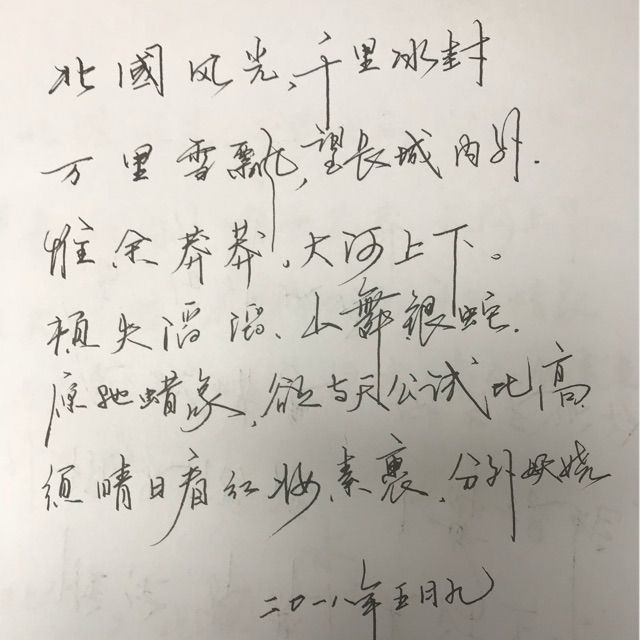 北國风光、千里冰封
万里雪飘,望长城内外.
惟余莽莽,大河上下。
顿失滔滔、山舞银蛇.
原驰蜡象,欲与天公试比高
须晴日看红妆素裹.分外妖娆
二〇一八年五月九